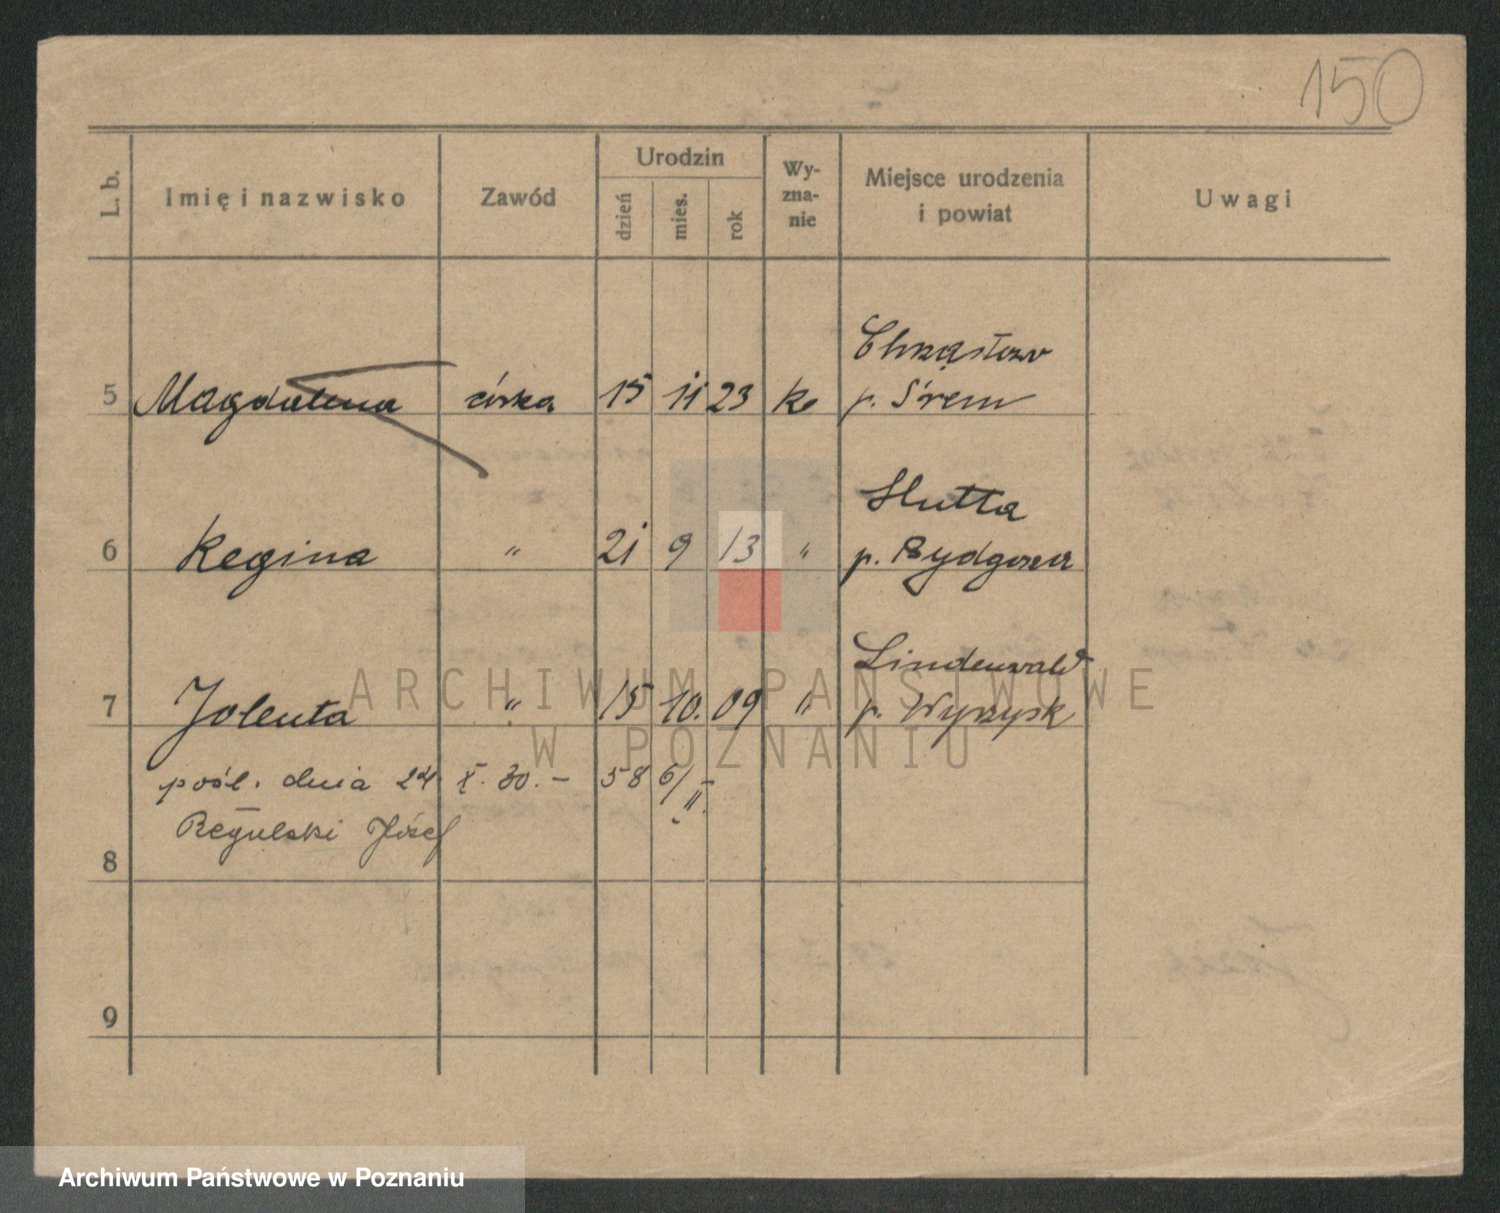 150
L. b.
Imię i nazwisko
Zawód
Urodzin
dzień mies. rok
Wy-
zna-
nie
Miejsce urodzenia
i powiat
Uwagi
Chrząstowo
5 Magdalena córka 15 11 23 k. p. Śrem
Hutta
6 Regina " 21 9 13 " p. Bydgoszcz
Lindenwald
7 Jolenta " 15 10. 09 " p. Wyrzysk
pośl. dnia 24 X. 30. – 58 6/II.
Regulski Józef
8
9
ARCHIWUM PAŃSTWOWE
W POZNANIU
Archiwum Państwowe w Poznaniu